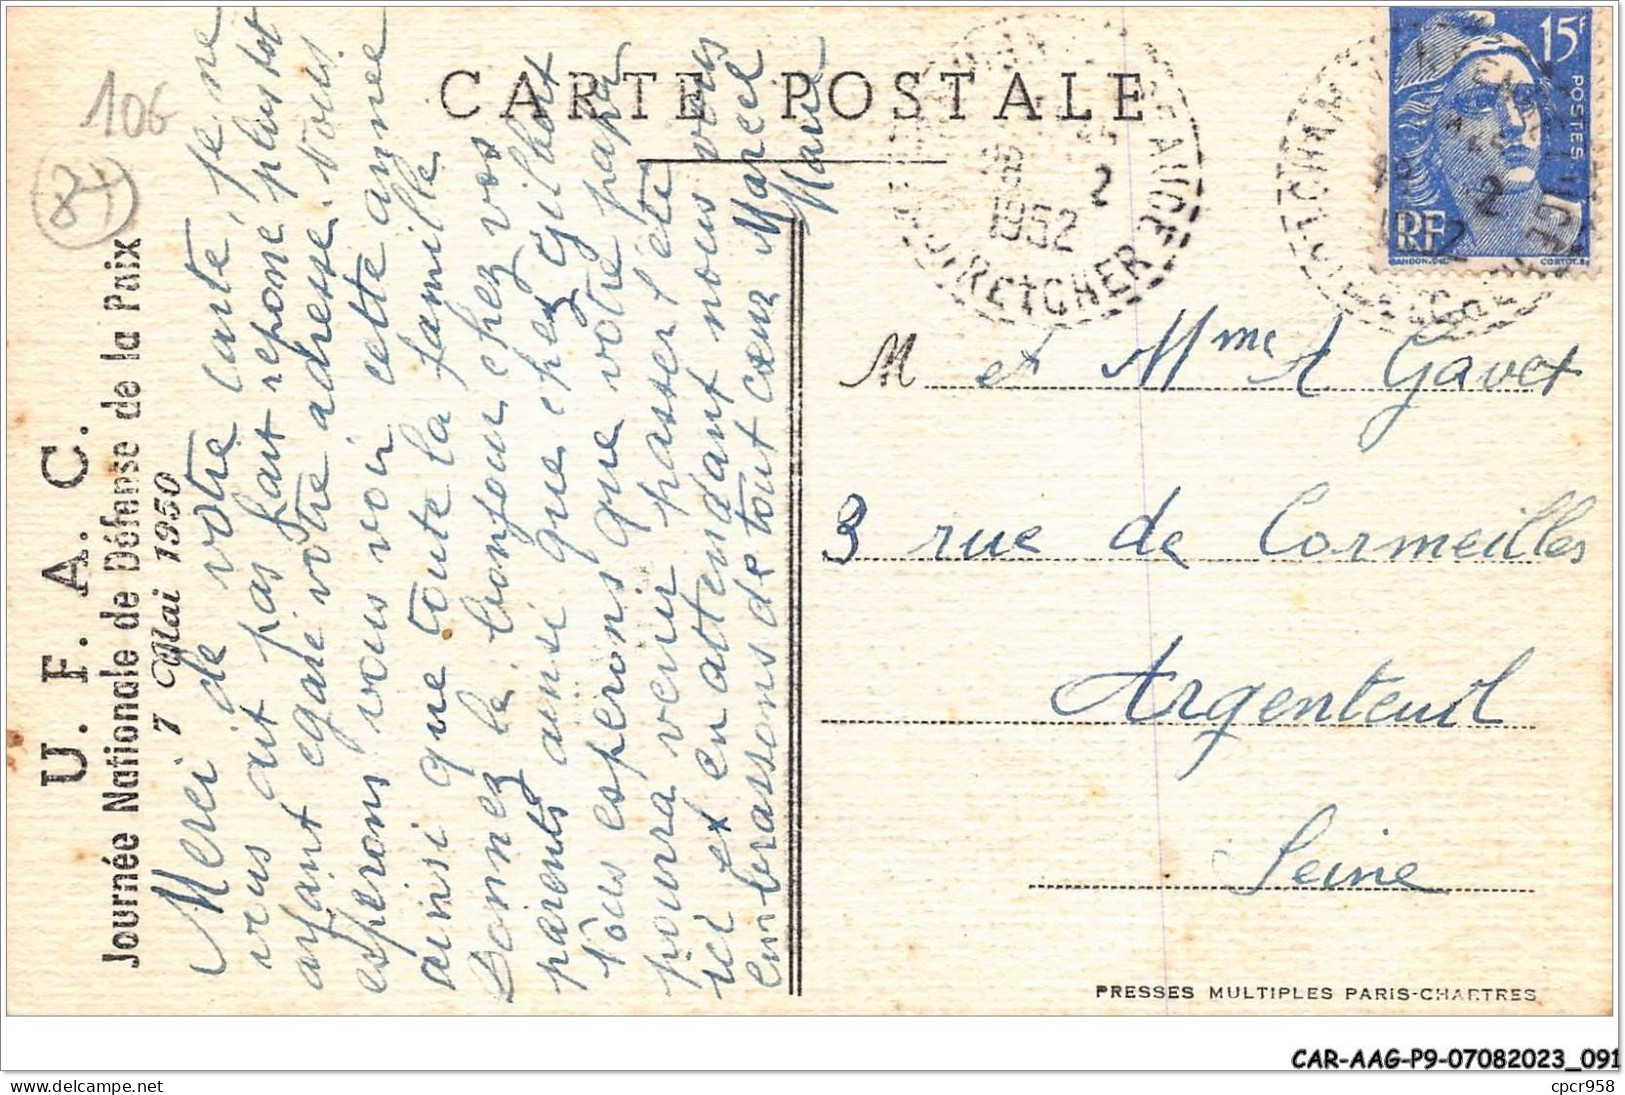 106
84
CARTE POSTALE
U. F. A. C.
Journée Nationale de Défense de la Paix
7 Mai 1950
Merci de votre carte, je ne
vous ait pas fait réponse plus tot
ayant égaré votre adresse. Nous
espérons vous voir cette année
ainsi que toute la famille
Donnez le bonjour chez vos
parents ainsi que chez Gilbert
Nous espérons que votre papa
pourra venir passer l'été
ici et en attendant nous vous
embrassons de tout cœur Marcel
Marie
15F
POSTES
RF
GANDON.DEL
CORTOT.SC
18
2
1952
LOIR ET CHER
M et Mme A Gavot
3 rue de Cormeilles
Argenteuil
Seine
PRESSES MULTIPLES PARIS-CHARTRES
CAR-AAG-P9-07082023_091
cpcr958